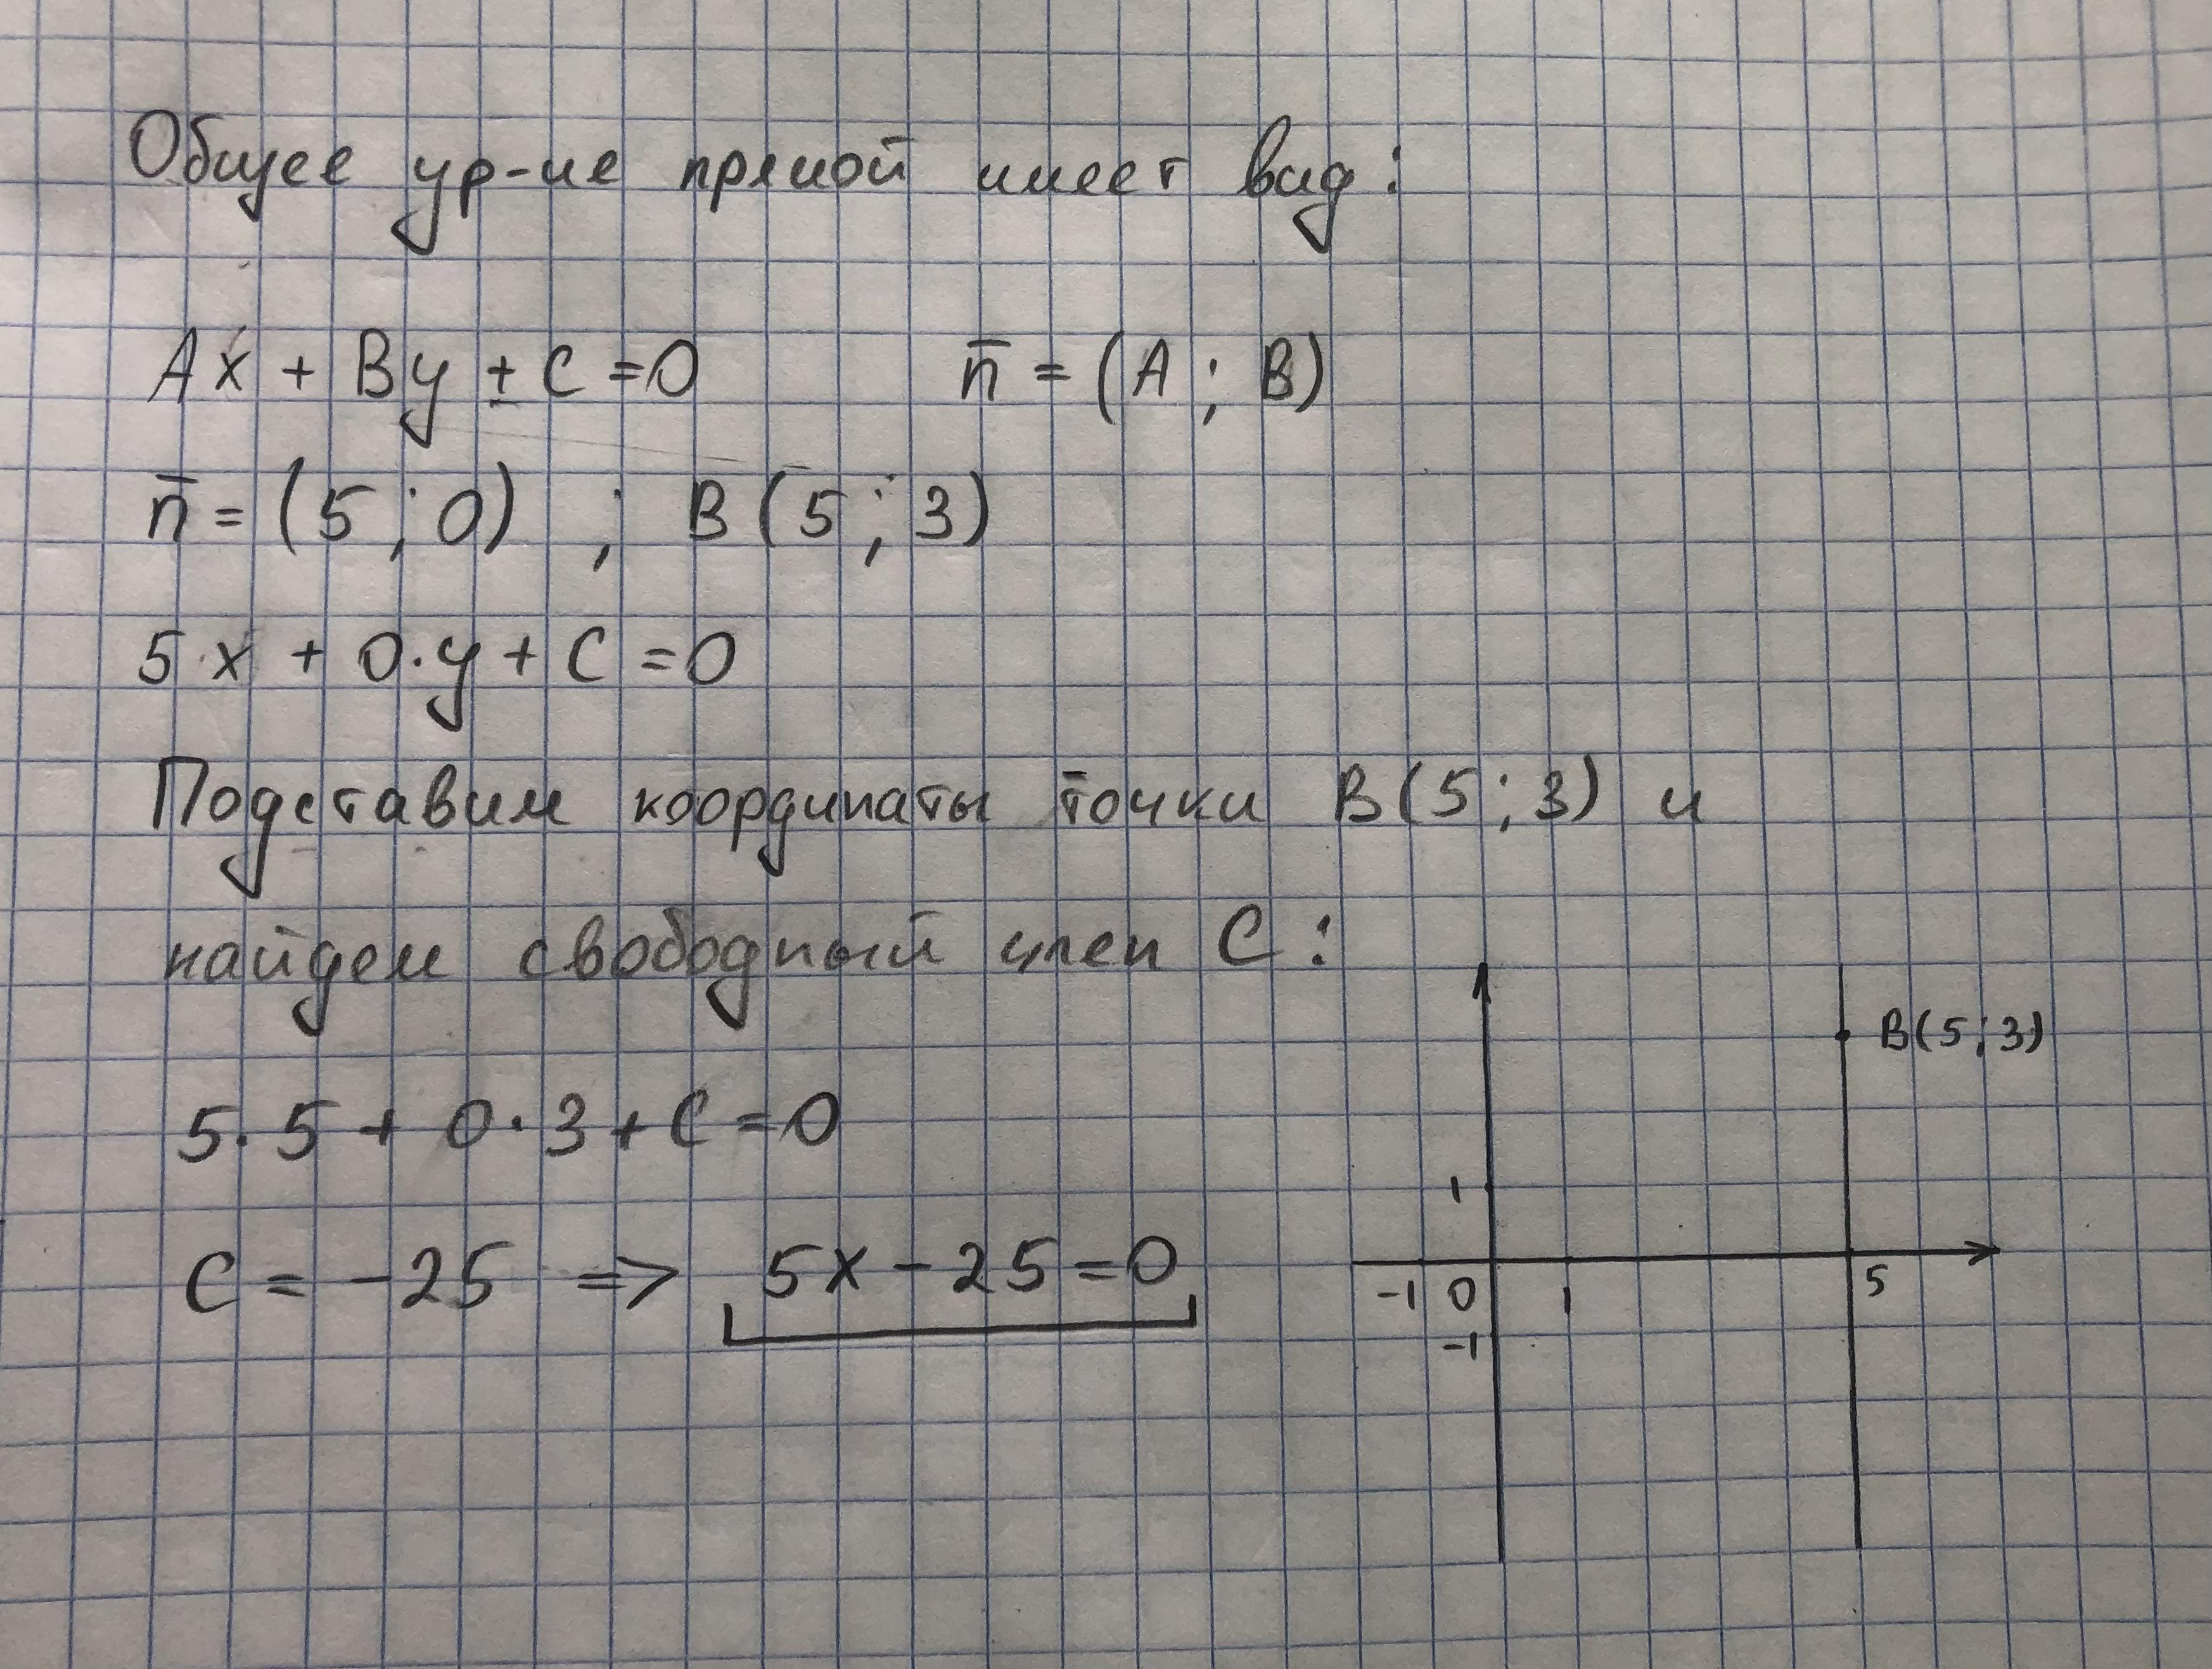 Общее ур-ие прямой имеет вид:
Ax + By ± C = 0 n̅ = (A ; B)
n̅ = (5 ; 0) ; B (5 ; 3)
5 x + 0·y + C = 0
Подставим координаты точки B(5 ; 3) и
найдем свободный член C :
5·5 + 0·3 + C = 0
C = -25 => 5x - 25 = 0
B(5 ; 3)
1
-1 0 1 5
-1